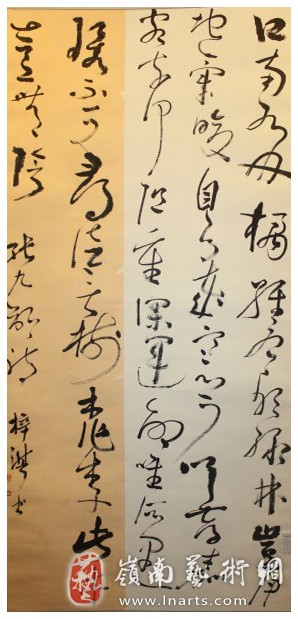 江南有丹橘經冬猶綠林豈伊
地氣暖自有歲寒心可以薦嘉
客奈何阻重深運命唯所遇循
環不可尋徒言樹桃李此木
豈無陰 張九齡詩 梓 書
嶺南藝術網
www.lnarts.com